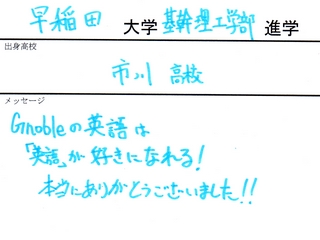 早稲田 大学 基幹理工学部 進学
出身高校
市川 高校
メッセージ
Gnobleの英語は
「英語」が好きになれる!
本当にありがとうございました!!